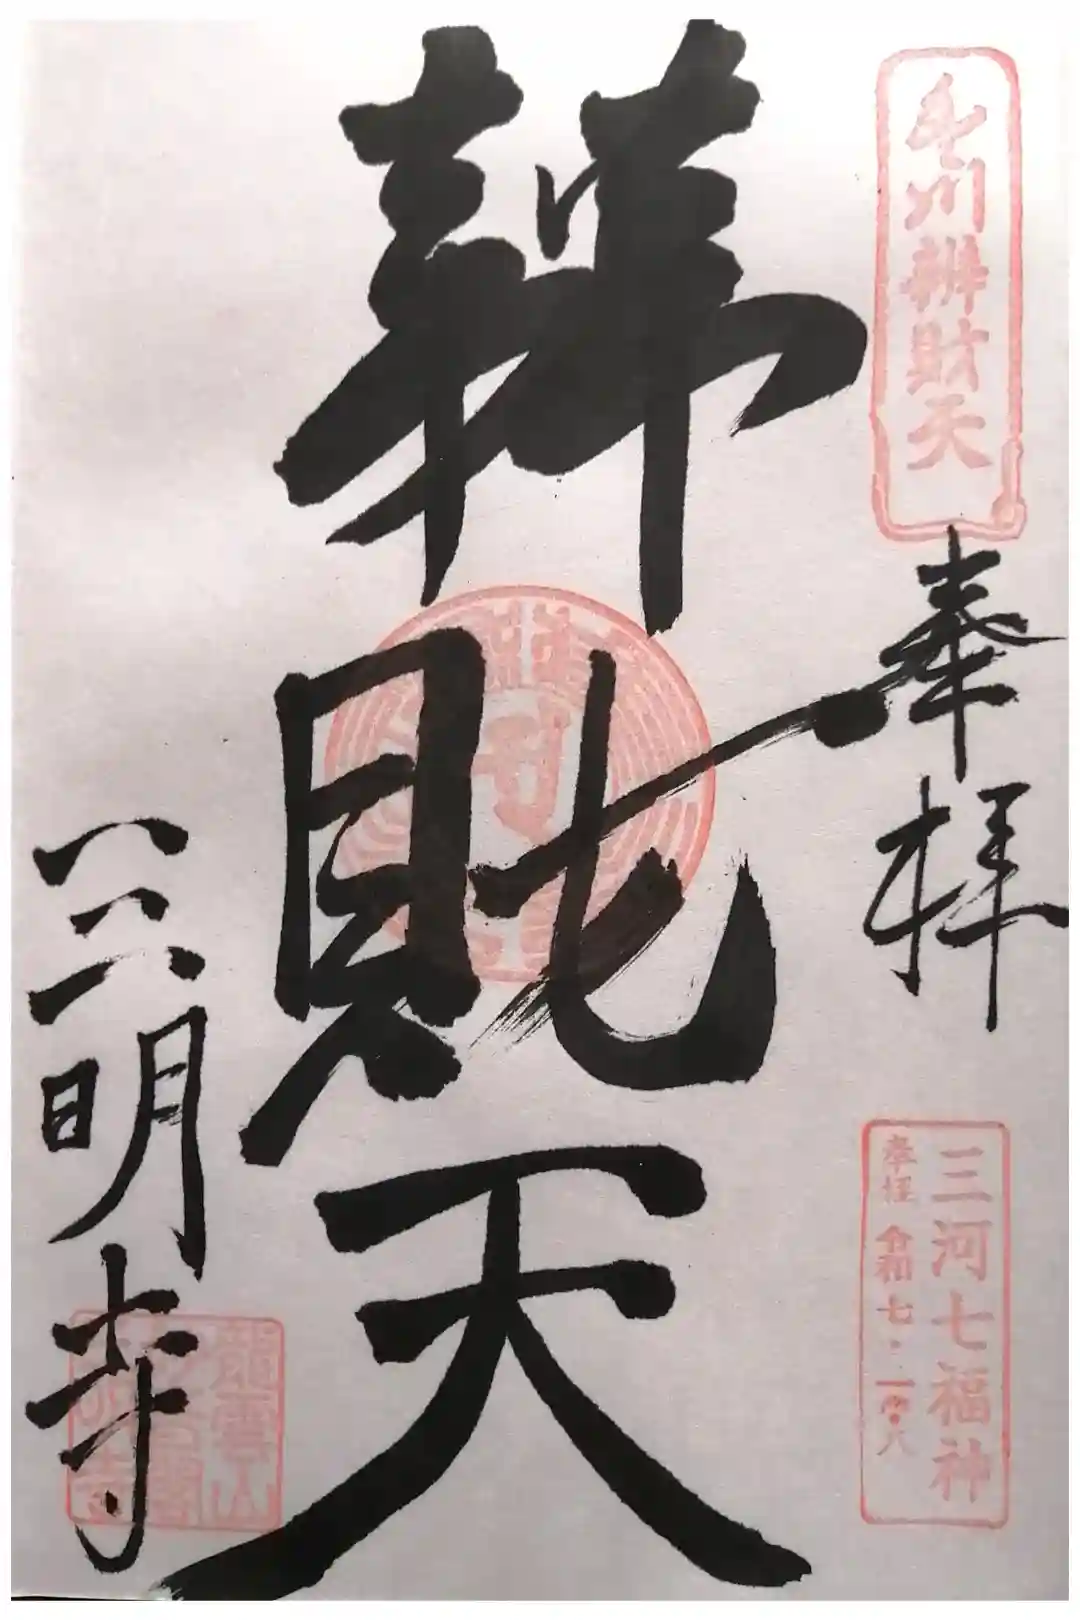 豊川辨財天
奉拝
三河七福神
奉拝 令和七
辨財天
三明寺
龍雲山